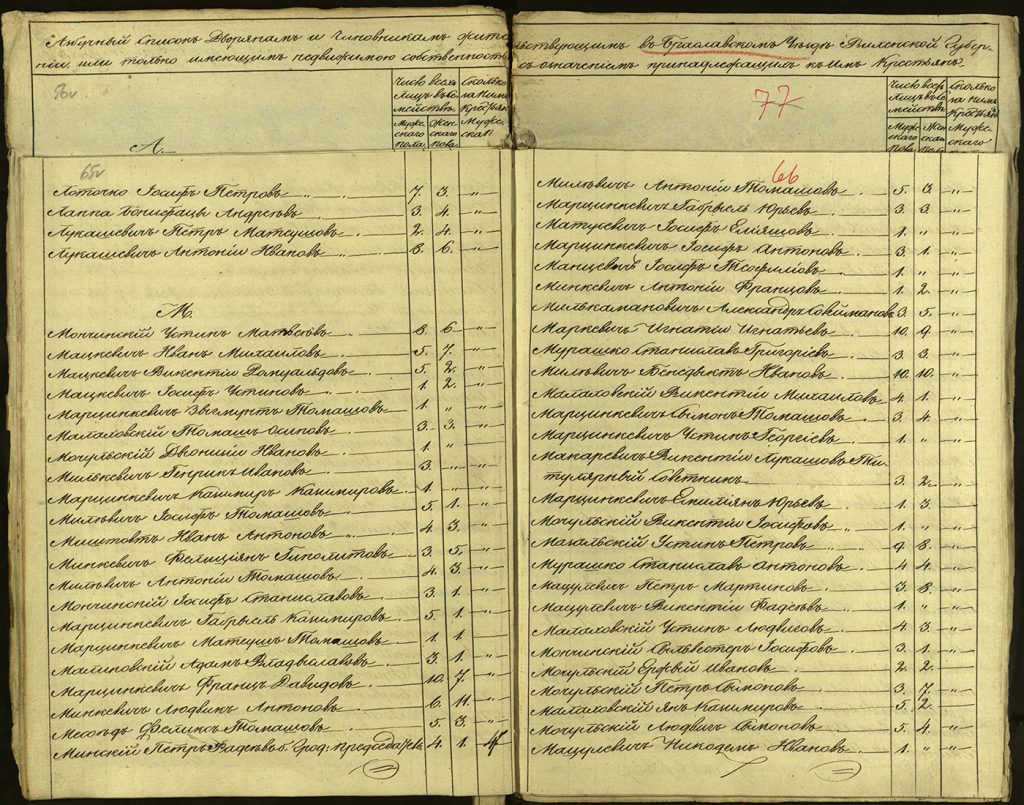 Азбучный списокъ Дворянамъ и Чиновникамъ жительствующимъ въ Браславскомъ Уѣздѣ Виленской Губер-
ніи или только имеющимъ недвижимою собственность съ означеніемъ принадлежащихъ къ имъ Крестьянъ
70v
77
Число всѣхъ лицъ въ семействѣ
Сколько за ними Крестьянъ Мужескаго
Мужескаго пола
Женскаго пола
Число всѣхъ лицъ въ семействѣ
Сколько за ними Крестьянъ Мужескаго
Мужескаго пола
Женскаго пола
А.
65v
Лоточко Іосифъ Петровъ 7. 3. "
Лаппа Бонифацы Андреевъ 3. 4. "
Лукашевичъ Петръ Матеушовъ 2. 4. "
Лукашевичъ Антоній Ивановъ 8. 6. "
М.
Мончинскій Устинъ Матвеевъ 8. 6. "
Мацкевичъ Иванъ Михайловъ 5. 7. "
Мацкевичъ Викентій Ромуальдовъ 5. 2. "
Мацкевичъ Іосифъ Устиновъ 1. 2. "
Марцинкевичъ Зыгмунтъ Томашовъ 1. " "
Малаховскій Томашъ Осиповъ 3. 3. "
Мочульскій Діонишій Ивановъ 1. " "
Милькевичъ Генрикъ Ивановъ 3. " "
Марцинкевичъ Казимиръ Казимировъ 1. " "
Милевичъ Іосифъ Томашовъ 5. 1. "
Миштовтъ Иванъ Антоновъ 4. 3. "
Минкевичъ Фелиціянъ Гиполитовъ 3. 5. "
Милевичъ Антоній Томашовъ 4. 3. "
Мончинскій Іосифъ Станиславовъ 3. 1. "
Марцинкевичъ Габрыель Казимировъ 5. 1. "
Марцинкевичъ Матеушъ Томашовъ 1. 1. "
Малиновскій Адамъ Владыславовъ 3. 1. "
Марцинкевичъ Францъ Давидовъ 10. 7. "
Минкевичъ Людвикъ Антоновъ 6. 11. "
Мееондъ Феликсъ Томашовъ 5. 3. "
Минскій Петръ Фадеевъ б. Грод: Предсѣдатель 4. 1. 4
66
Милевичъ Антоній Томашовъ 5. 3. "
Марцинкевичъ Габрыель Юрьевъ 3. 3. "
Матусевичъ Іосифъ Еліяшовъ 1. " "
Марцинкевичъ Іосифъ Антоновъ 3. 1. "
Манцевичъ Іосифъ Теофиліовъ 1. " "
Минкевичъ Антоній Францовъ 1. 2. "
Милькамановичъ Александръ 3. 5. "
Маркевичъ Игнатій Игнатьевъ 10. 9. "
Мурашко Станиславъ Григоріевъ 3. 3. "
Милевичъ Бенедыктъ Ивановъ 10. 10. "
Малаховскій Викентій Михайловъ 4. 1. "
Марцинкевичъ Сымонъ Томашовъ 3. 4. "
Марцинкевичъ Устинъ Георгіевъ 1. " "
Макаревичъ Викентій Лукашовъ Ти-
тулярный Совѣтникъ 3. 2. "
Марцинкевичъ Емиліянъ Юрьевъ 1. 3. "
Мочульскій Викентій Іосифовъ 1. " "
Макальскій Устинъ Петровъ 9. 8. "
Мурашко Станиславъ Антоновъ 4. 4. "
Мацулевичъ Петръ Мартиновъ 3. 8. "
Мацулевичъ Викентій Фадеевъ 1. " "
Малаховскій Устинъ Людвиговъ 4. 3. "
Мончинскій Сильвестеръ Іосифовъ 3. 1. "
Мочульскій Ержый Ивановъ 2. 2. "
Мочульскій Петръ Сымоновъ 3. 7. "
Малаховскій Янъ Казимировъ 5. 2. "
Мочульскій Людвигъ Сымоновъ 5. 4. "
Мацулевичъ Никодемъ Ивановъ 1. " "